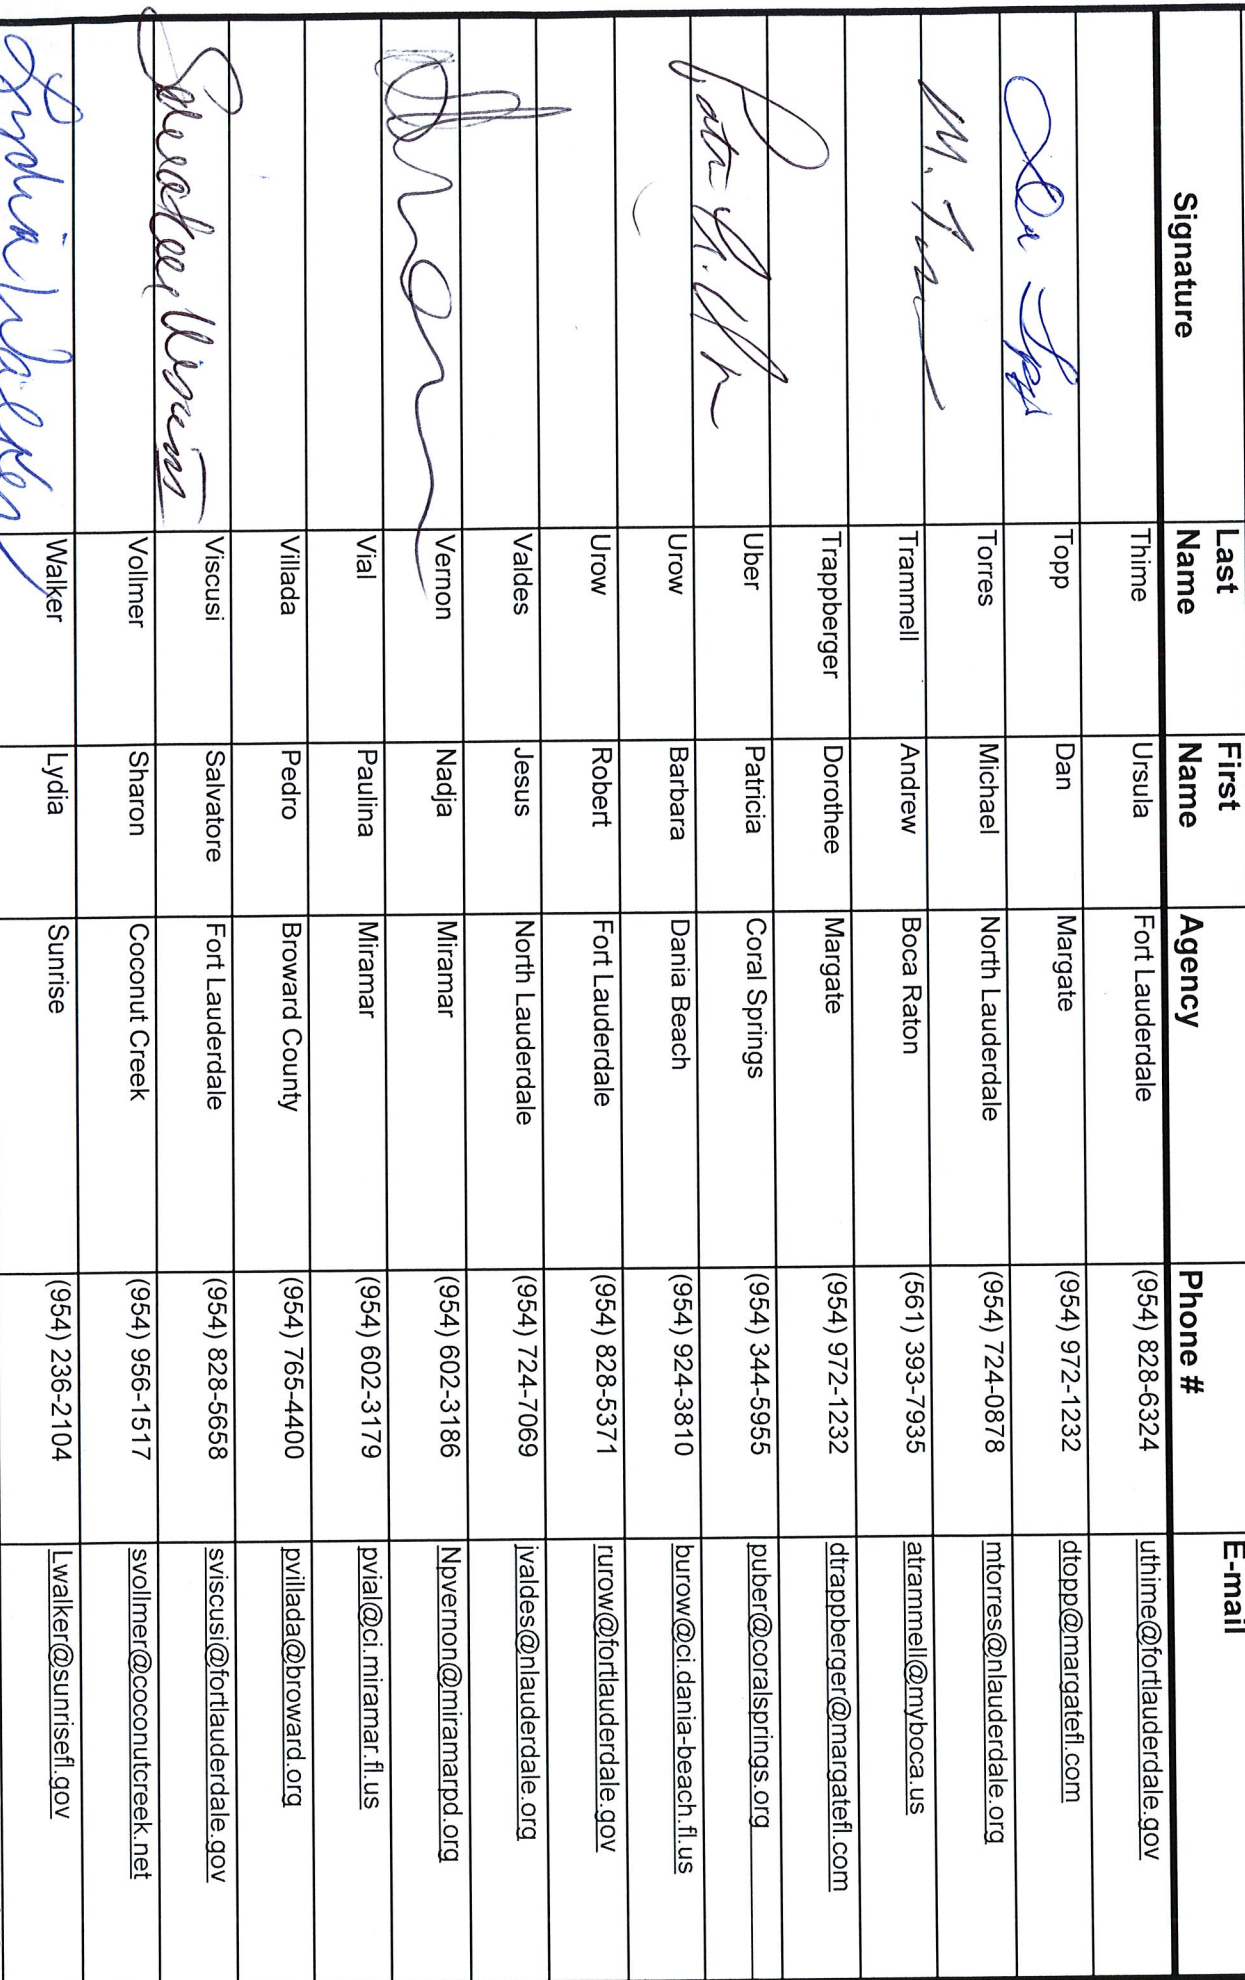 Signature Last Name First Name Agency Phone # E-mail
Thime Ursula Fort Lauderdale (954) 828-6324 uthime@fortlauderdale.gov
Topp Dan Margate (954) 972-1232 dtopp@margatefl.com
M. Torres Michael North Lauderdale (954) 724-0878 mtorres@nlauderdale.org
Trammell Andrew Boca Raton (561) 393-7935 atrammell@myboca.us
Trappberger Dorothee Margate (954) 972-1232 dtrappberger@margatefl.com
Uber Patricia Coral Springs (954) 344-5955 puber@coralsprings.org
Urow Barbara Dania Beach (954) 924-3810 burow@ci.dania-beach.fl.us
Urow Robert Fort Lauderdale (954) 828-5371 rurow@fortlauderdale.gov
Valdes Jesus North Lauderdale (954) 724-7069 jvaldes@nlauderdale.org
Vernon Nadja Miramar (954) 602-3186 Npvernon@miramarpd.org
Vial Paulina Miramar (954) 602-3179 pvial@ci.miramar.fl.us
Villada Pedro Broward County (954) 765-4400 pvillada@broward.org
Salvatore Viscusi Viscusi Salvatore Fort Lauderdale (954) 828-5658 sviscusi@fortlauderdale.gov
Vollmer Sharon Coconut Creek (954) 956-1517 svollmer@coconutcreek.net
Lydia Walker Walker Lydia Sunrise (954) 236-2104 Lwalker@sunrisefl.gov